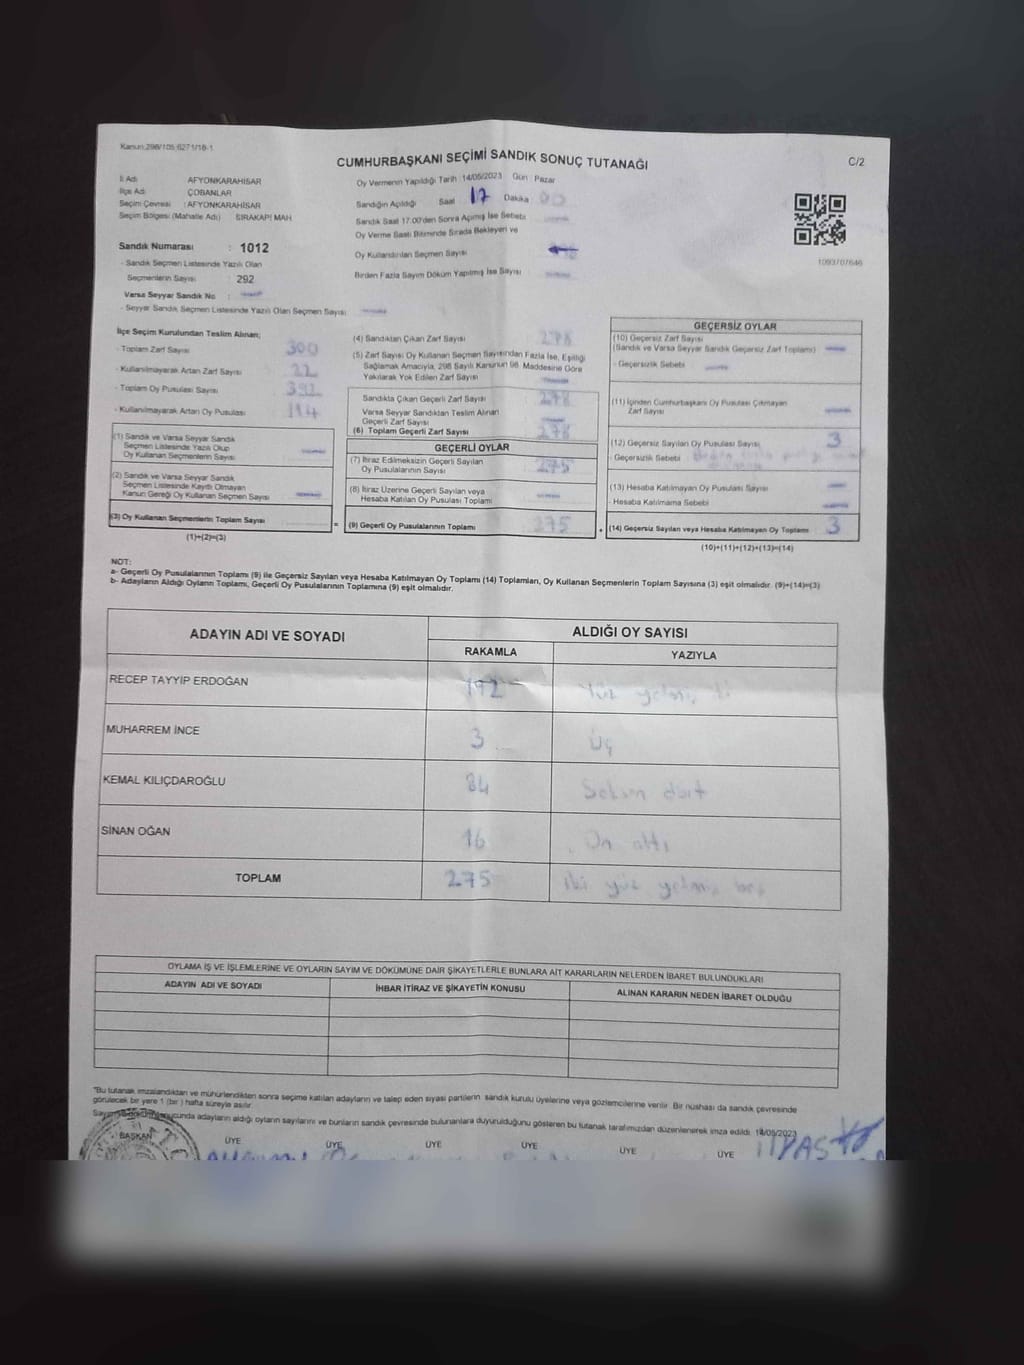 Kanun:298/105;6271/18-1
CUMHURBAŞKANI SEÇİMİ SANDIK SONUÇ TUTANAĞI
C/2
İl Adı AFYONKARAHİSAR
İlçe Adı ÇOBANLAR
Seçim Çevresi : AFYONKARAHİSAR
Seçim Bölgesi (Mahalle Adı) SIRAKAPI MAH.
Oy Vermenin Yapıldığı Tarih 14/05/2023 Gün : Pazar
Sandığın Açıldığı Saat 17 Dakika 00
Sandık Saat 17.00'den Sonra Açılmış İse Sebebi
Oy Verme Saati Bitiminde Sırada Bekleyen ve
Oy Kullandırılan Seçmen Sayısı
Birden Fazla Sayım Döküm Yapılmış İse Sayısı
1093707646
Sandık Numarası : 1012
- Sandık Seçmen Listesinde Yazılı Olan
Seçmenlerin Sayısı : 292
Varsa Seyyar Sandık No :
- Seyyar Sandık Seçmen Listesinde Yazılı Olan Seçmen Sayısı
İlçe Seçim Kurulundan Teslim Alınan;
- Toplam Zarf Sayısı 300
- Kullanılmayarak Artan Zarf Sayısı 22
- Toplam Oy Pusulası Sayısı
- Kullanılmayarak Artan Oy Pusulası
(1) Sandık ve Varsa Seyyar Sandık
Seçmen Listesinde Yazılı Olup
Oy Kullanan Seçmenlerin Sayısı
(2) Sandık ve Varsa Seyyar Sandık
Seçmen Listesinde Kayıtlı Olmayan
Kanun Gereği Oy Kullanan Seçmen Sayısı
(3) Oy Kullanan Seçmenlerin Toplam Sayısı
(1)+(2)=(3)
(4) Sandıktan Çıkan Zarf Sayısı 278
(5) Zarf Sayısı Oy Kullanan Seçmen Sayısından Fazla İse, Eşitliği
Sağlamak Amacıyla, 298 Sayılı Kanunun 98. Maddesine Göre
Yakılarak Yok Edilen Zarf Sayısı
Sandıkta Çıkan Geçerli Zarf Sayısı 278
Varsa Seyyar Sandıktan Teslim Alınan
Geçerli Zarf Sayısı
(6) Toplam Geçerli Zarf Sayısı 278
GEÇERLİ OYLAR
(7) İtiraz Edilmeksizin Geçerli Sayılan
Oy Pusulalarının Sayısı 275
(8) İtiraz Üzerine Geçerli Sayılan veya
Hesaba Katılan Oy Pusulası Toplamı
=
(9) Geçerli Oy Pusulalarının Toplamı 275
+
GEÇERSİZ OYLAR
(10) Geçersiz Zarf Sayısı
(Sandık ve Varsa Seyyar Sandık Geçersiz Zarf Toplamı)
- Geçersizlik Sebebi
(11) İçinden Cumhurbaşkanı Oy Pusulası Çıkmayan
Zarf Sayısı
(12) Geçersiz Sayılan Oy Pusulası Sayısı 3
- Geçersizlik Sebebi
(13) Hesaba Katılmayan Oy Pusulası Sayısı
- Hesaba Katılmama Sebebi
(14) Geçersiz Sayılan veya Hesaba Katılmayan Oy Toplamı 3
(10)+(11)+(12)+(13)=(14)
NOT:
a- Geçerli Oy Pusulalarının Toplamı (9) ile Geçersiz Sayılan veya Hesaba Katılmayan Oy Toplamı (14) Toplamları, Oy Kullanan Seçmenlerin Toplam Sayısına (3) eşit olmalıdır. (9)+(14)=(3)
b- Adayların Aldığı Oyların Toplamı, Geçerli Oy Pusulalarının Toplamına (9) eşit olmalıdır.
ADAYIN ADI VE SOYADI
ALDIĞI OY SAYISI
RAKAMLA YAZIYLA
RECEP TAYYİP ERDOĞAN Yüz yetmiş
MUHARREM İNCE 3 Üç
KEMAL KILIÇDAROĞLU 84 Seksen dört
SİNAN OĞAN 16 On altı
TOPLAM 275 iki yüz yetmiş beş
OYLAMA İŞ VE İŞLEMLERİNE VE OYLARIN SAYIM VE DÖKÜMÜNE DAİR ŞİKAYETLERLE BUNLARA AİT KARARLARIN NELERDEN İBARET BULUNDUKLARI
ADAYIN ADI VE SOYADI İHBAR İTİRAZ VE ŞİKAYETİN KONUSU ALINAN KARARIN NEDEN İBARET OLDUĞU
"Bu tutanak imzalandıktan ve mühürlendikten sonra seçime katılan adayların ve talep eden siyasi partilerin sandık kurulu üyelerine veya gözlemcilerine verilir. Bir nüshası da sandık çevresinde
görülecek bir yere 1 (bir ) hafta süreyle asılır.
adayların aldığı oyların sayılarını ve bunların sandık çevresinde bulunanlara duyurulduğunu gösteren bu tutanak tarafımızdan düzenlenerek imza edildi. 14/05/2023
BAŞKAN ÜYE ÜYE ÜYE ÜYE ÜYE ÜYE